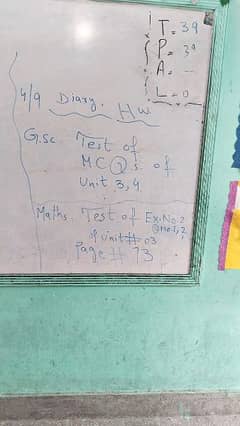 T= 39
P= 39
A= --
L= 0
4/9 Diary. HW
G.sc Test of
MCQs of
Unit 3,4
Maths. Test of Ex.No.2
Q No 1,2
of Unit# 03
Page # 73